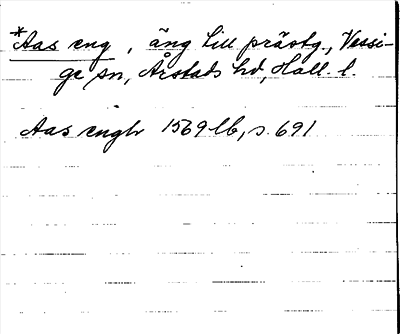 *Aas eng, äng till prästg., Vessi-
ge sn, Årstads hd, Hall. l.
Aas engh 1569 lb, s. 691